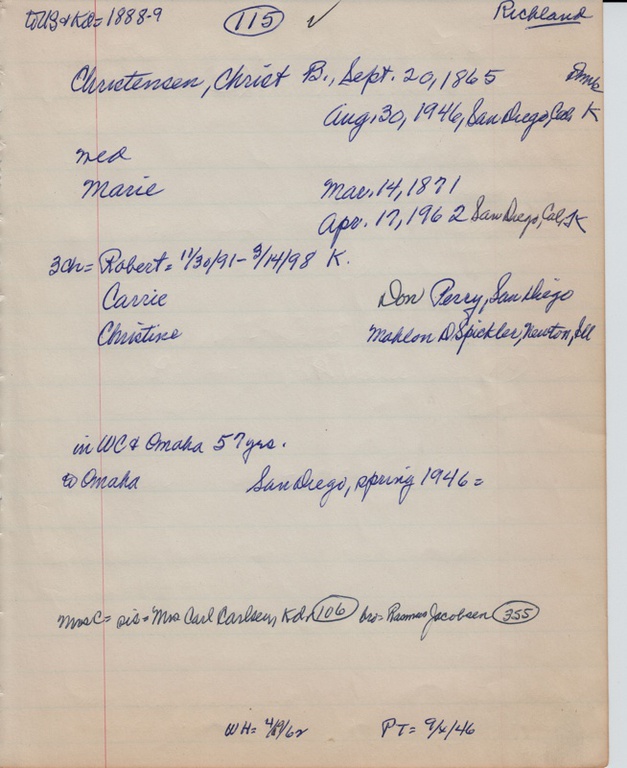 to US & Kd = 1888-9 115 ✓ Richland
Christensen, Christ B., Sept. 20, 1865 Dmk
Aug. 30, 1946, San Diego, Cal. K
med
Marie Mar. 14, 1871
Apr. 17, 1962 San Diego, Cal, K
3ch = Robert = 11/30/91 - 3/14/98 K.
Carrie Don Perry, San Diego
Christine Mahlon D Spickler, Newton, Ill
in WC & Omaha 57 yrs.
to Omaha San Diego, spring 1946 =
Mrs C = sis = Mrs Carl Carlsen, Kd. 106 bro = Rasmus Jacobsen 355
WH = PT = 9/x/46